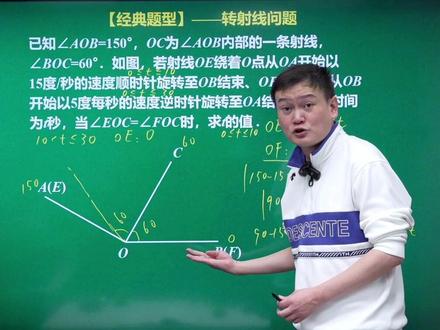 【经典题型】——转射线问题
已知∠AOB=150°，OC为∠AOB内部的一条射线，
∠BOC=60°．如图，若射线OE绕着O点从OA开始以
15度/秒的速度顺时针旋转至OB结束、OF
从OB
开始以5度每秒的速度逆时针旋转至OA结
时间
为t秒，当∠EOC=∠FOC时，求t的值．
0≤t≤10
10<t≤30 OE：0
0≤t≤
OE
OF：
|150-15
|90
90-15
150 A(E)
C 60
60
60
O
B(F) 0
DESCENTE